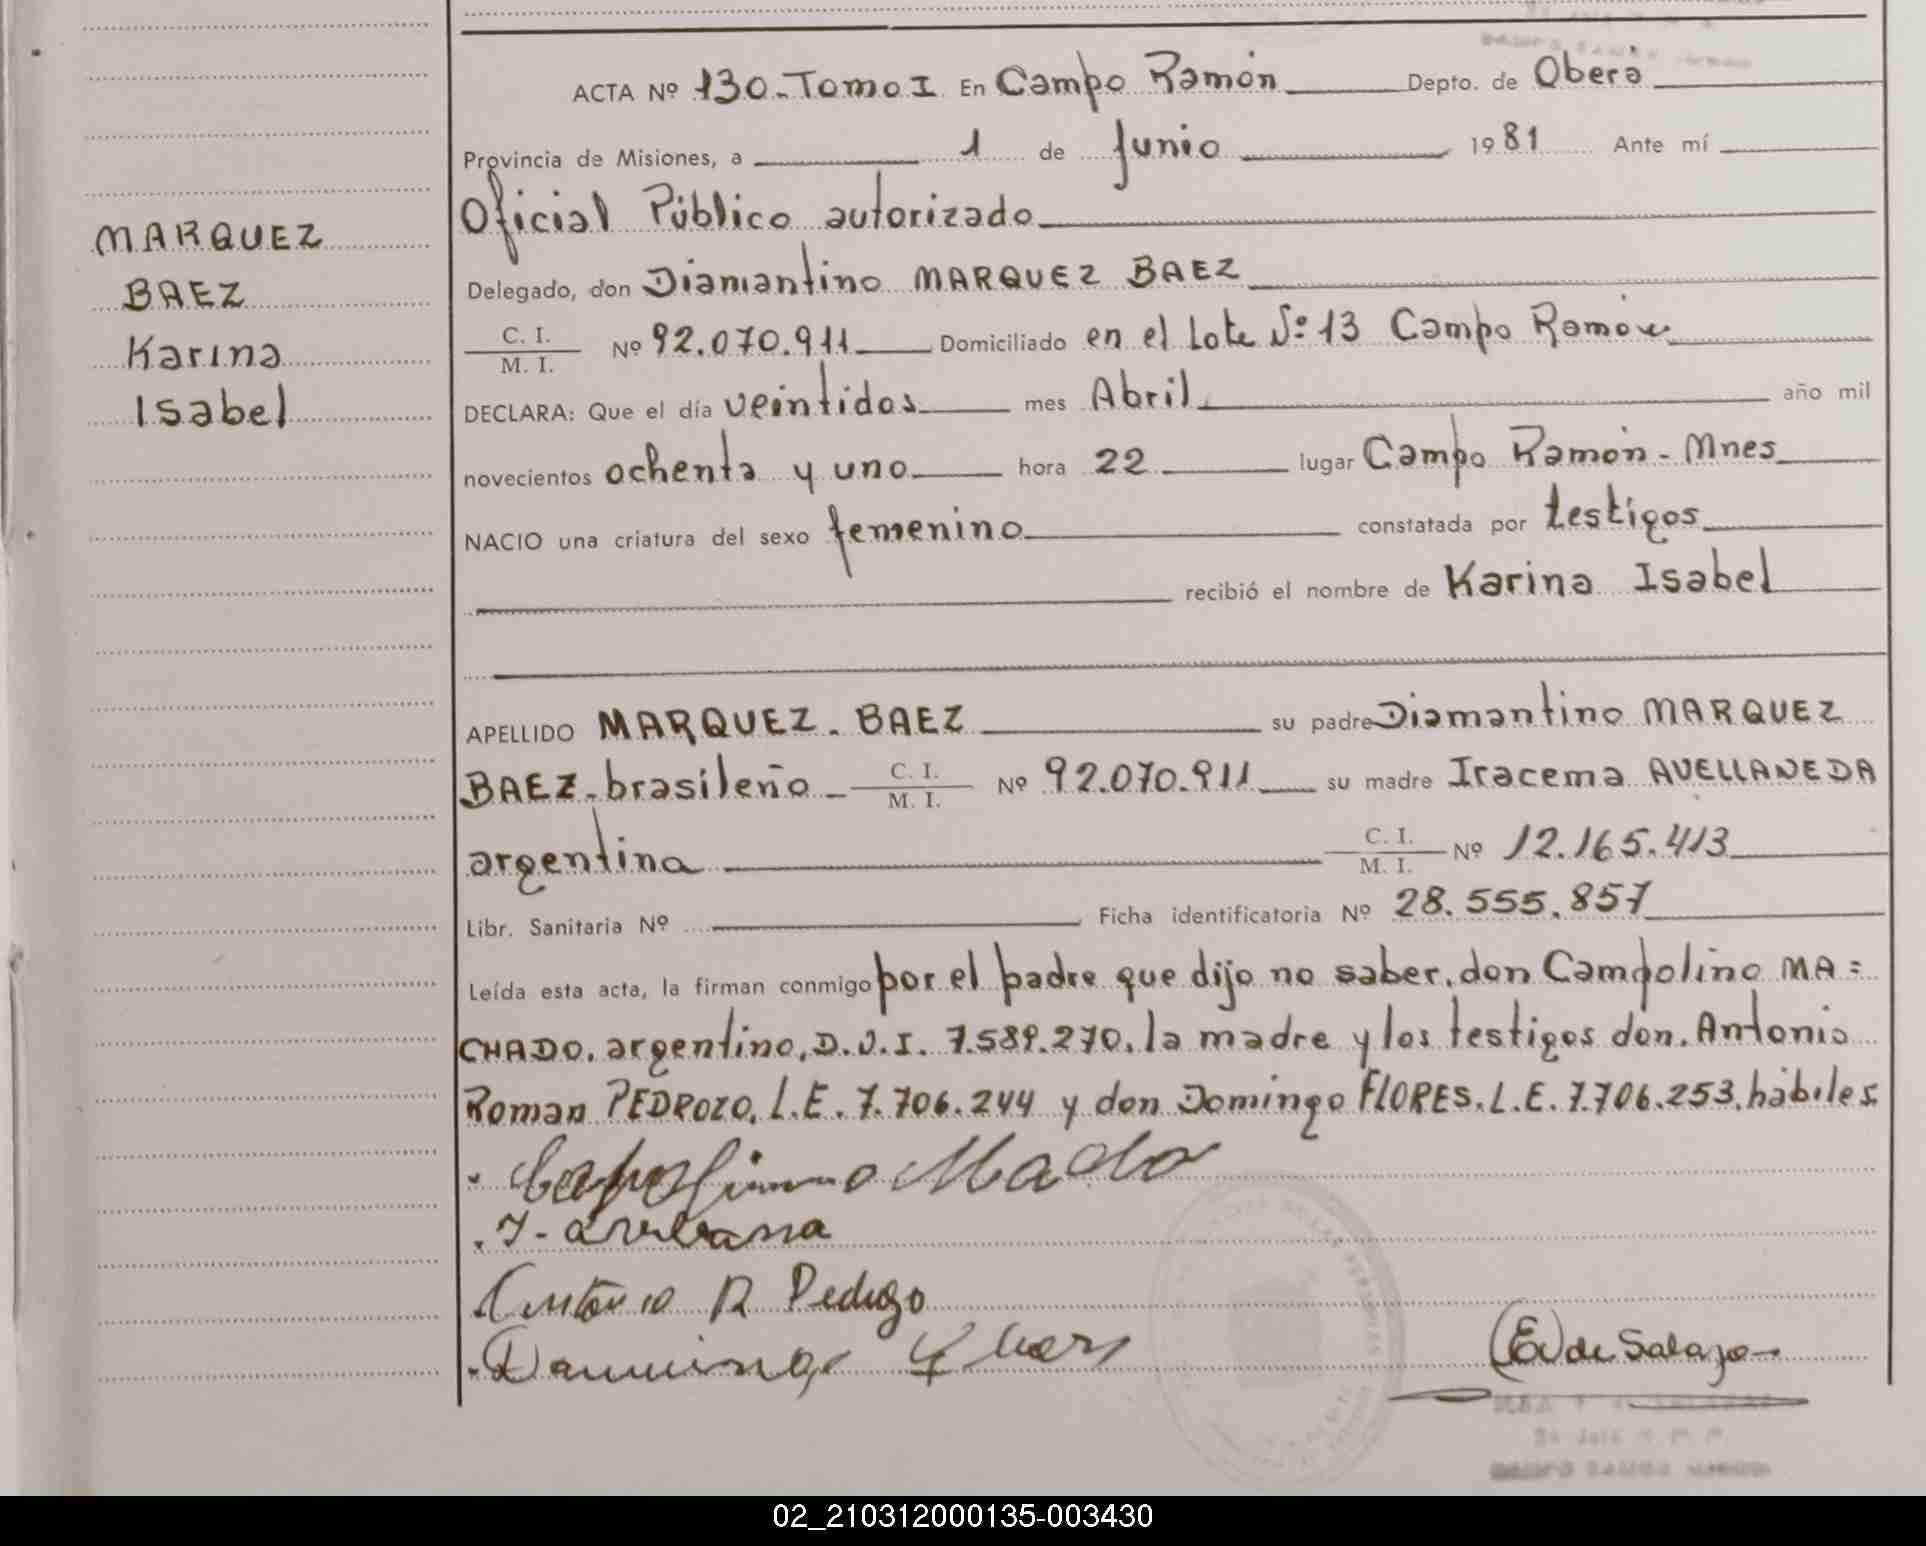 ACTA Nº 130 - Tomo I En Campo Ramón Depto. de Oberá
Provincia de Misiones, a 1 de Junio 1981 Ante mí
Oficial Público autorizado
Delegado, don Diamantino MARQUEZ BAEZ
C. I. / M. I. Nº 92.070.911 Domiciliado en el Lote Nº 13 Campo Ramón
DECLARA: Que el día veintidos mes Abril año mil
novecientos ochenta y uno hora 22 lugar Campo Ramón - Mnes
NACIO una criatura del sexo femenino constatada por testigos
recibió el nombre de Karina Isabel
APELLIDO MARQUEZ - BAEZ su padre Diamantino MARQUEZ
BAEZ - brasileño - C. I. / M. I. Nº 92.070.911 su madre Iracema AVELLANEDA
argentina C. I. / M. I. Nº 12.165.413
Libr. Sanitaria Nº Ficha identificatoria Nº 28.555.857
Leída esta acta, la firman conmigo por el padre que dijo no saber, don Campolino MA=
CHADO, argentino, D.N.I. 7.589.270, la madre y los testigos don. Antonio
Roman PEDROZO, L.E. 7.706.244 y don Domingo FLORES, L.E. 7.706.253, hábiles
Antonio R Pedrozo
(E) de Salazar
MARQUEZ
BAEZ
Karina
Isabel
02_210312000135-003430